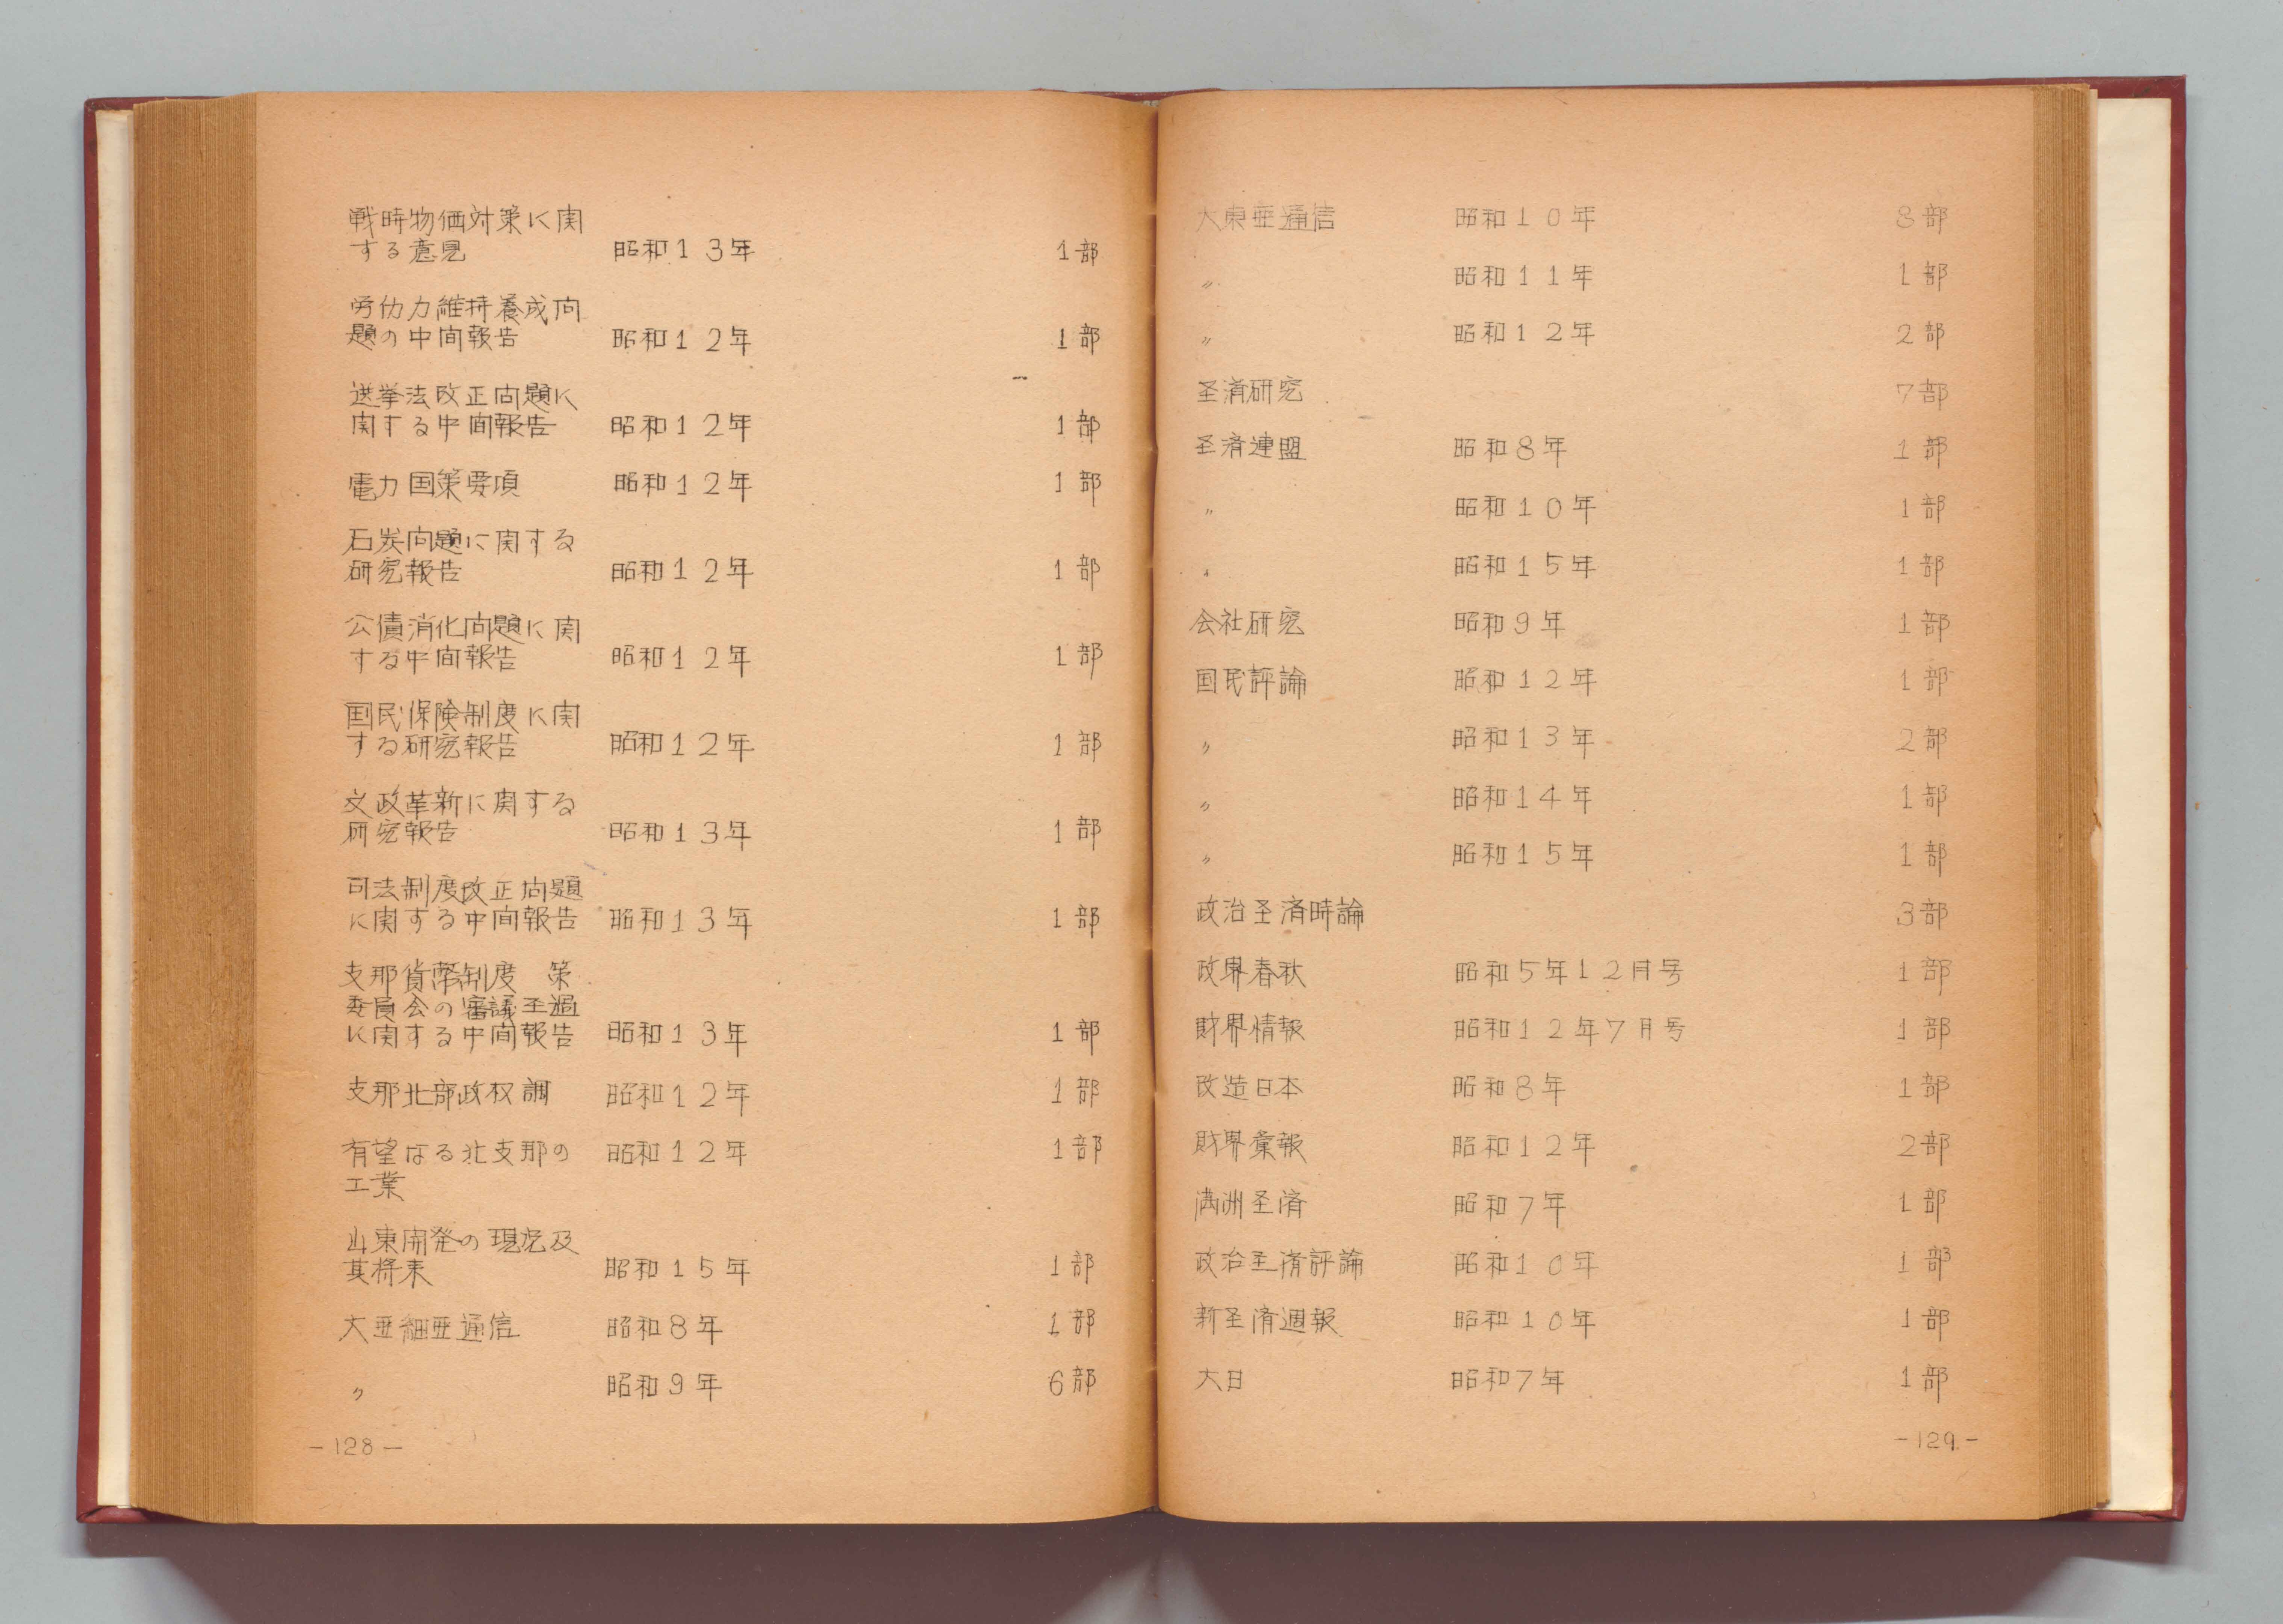 戦時物価対策に関
する意見 昭和13年 1部
労仂力維持養成问
題の中间報告 昭和12年 1部
选挙法改正问題に
関する中间報告 昭和12年 1部
電力国策要項 昭和12年 1部
石炭问題に関する
研究報告 昭和12年 1部
公債消化问題に関
する中间報告 昭和12年 1部
国民保険制度に関
する研究報告 昭和12年 1部
文政革新に関する
研究報告 昭和13年 1部
司法制度改正问題
に関する中间報告 昭和13年 1部
支那貨幣制度 策
委員会の審議圣過
に関する中间報告 昭和13年 1部
支那北部政权調 昭和12年 1部
有望なる北支那の 昭和12年 1部
工業
山東開発の現況及
其将来 昭和15年 1部
大亜細亜通信 昭和8年 1部
〃 昭和9年 6部
-128-
大東亜通信 昭和10年 8部
〃 昭和11年 1部
〃 昭和12年 2部
圣済研究 7部
圣済連盟 昭和8年 1部
〃 昭和10年 1部
〃 昭和15年 1部
会社研究 昭和9年 1部
国民評論 昭和12年 1部
〃 昭和13年 2部
〃 昭和14年 1部
〃 昭和15年 1部
政治圣済時論 3部
政界春秋 昭和5年12月号 1部
財界情報 昭和12年7月号 1部
改造日本 昭和8年 1部
財界彙報 昭和12年 2部
満洲圣済 昭和7年 1部
政治圣済評論 昭和10年 1部
新圣済週報 昭和10年 1部
大日 昭和7年 1部
-129-